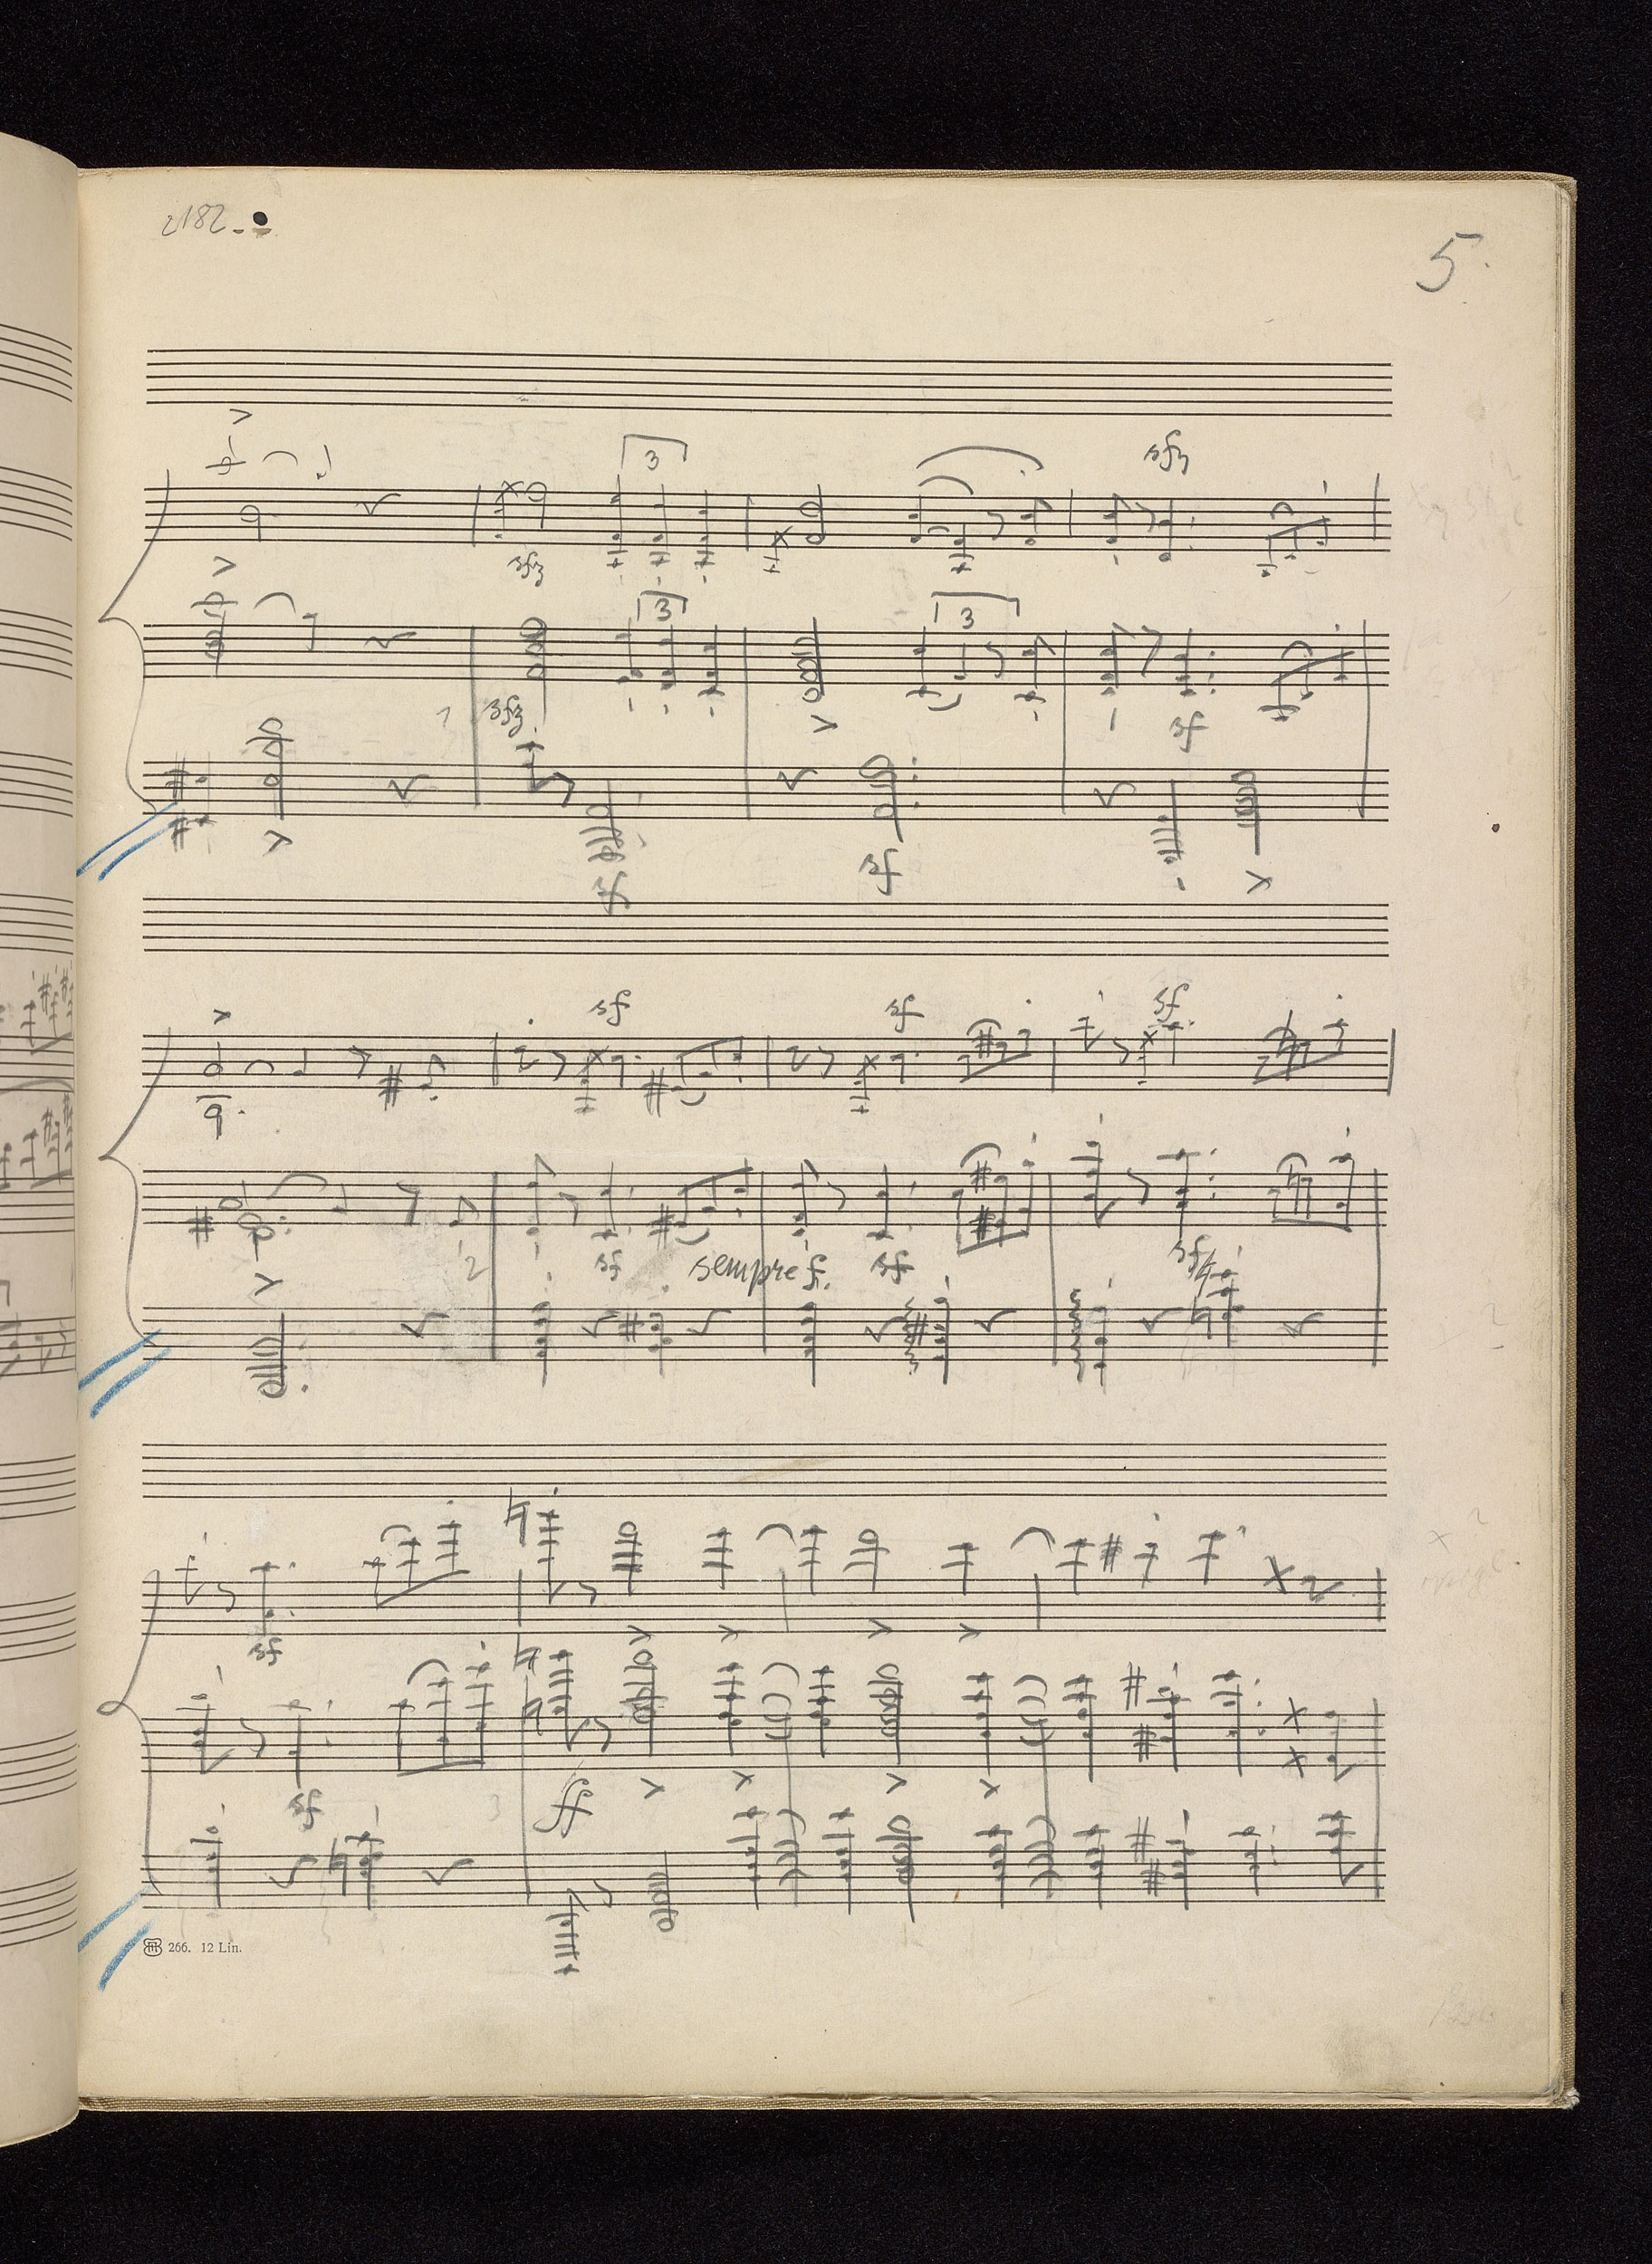 2182.
5.
3
sfz
sfz
3
3
sfz
sf
sf
sf
sf
sf
sf
2
sf
sempre f.
sf
sf
sf
sf
3
ff
266. 12 Lin.